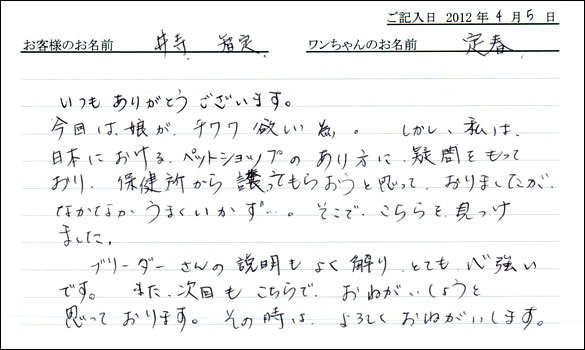 ご記入日 2012年4月5日
お客様のお名前 井寺 智定 ワンちゃんのお名前 定春
いつもありがとうございます。
今回は、娘が、チワワ欲しい為。 しかし、私は、
日本における、ペットショップのあり方に、疑問をもって
おり、保健所から譲ってもらおうと思って、おりましたが、
なかなかうまくいかず…。そこで、こちらを、見つけ
ました。
ブリーダーさんの説明もよく解り、とても心強い
です。 また、次回もこちらで、おねがいしようと
思っております。その時は、よろしくおねがいします。